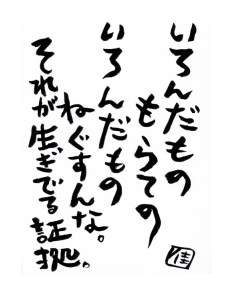 いろんだもの
もらての
いろんだもの
ねぐすんな。
それが生ぎでる
証拠。
佳